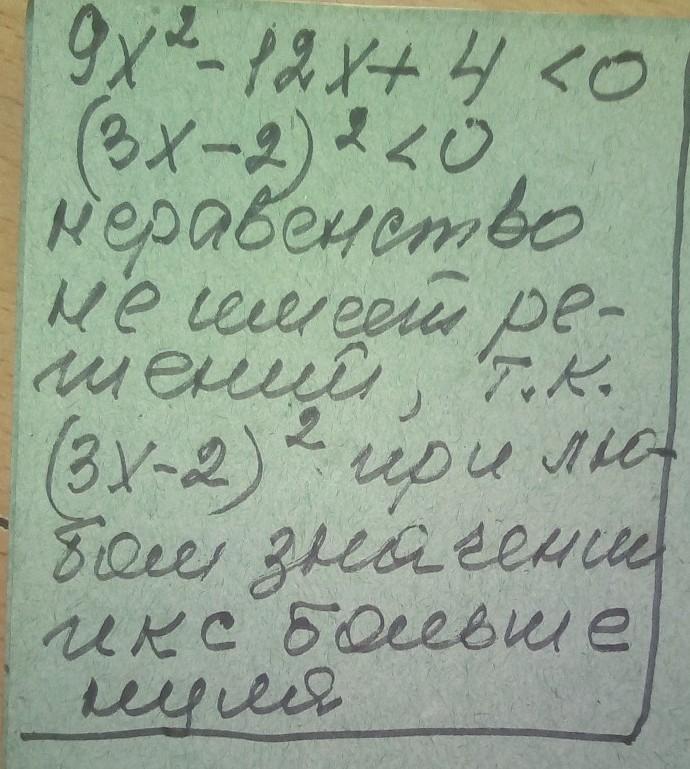 9x² - 12x + 4 < 0
(3x - 2)² < 0
неравенство
не имеет ре-
шений, т.к.
(3x - 2)² при лю-
бом значении
икс больше
нуля